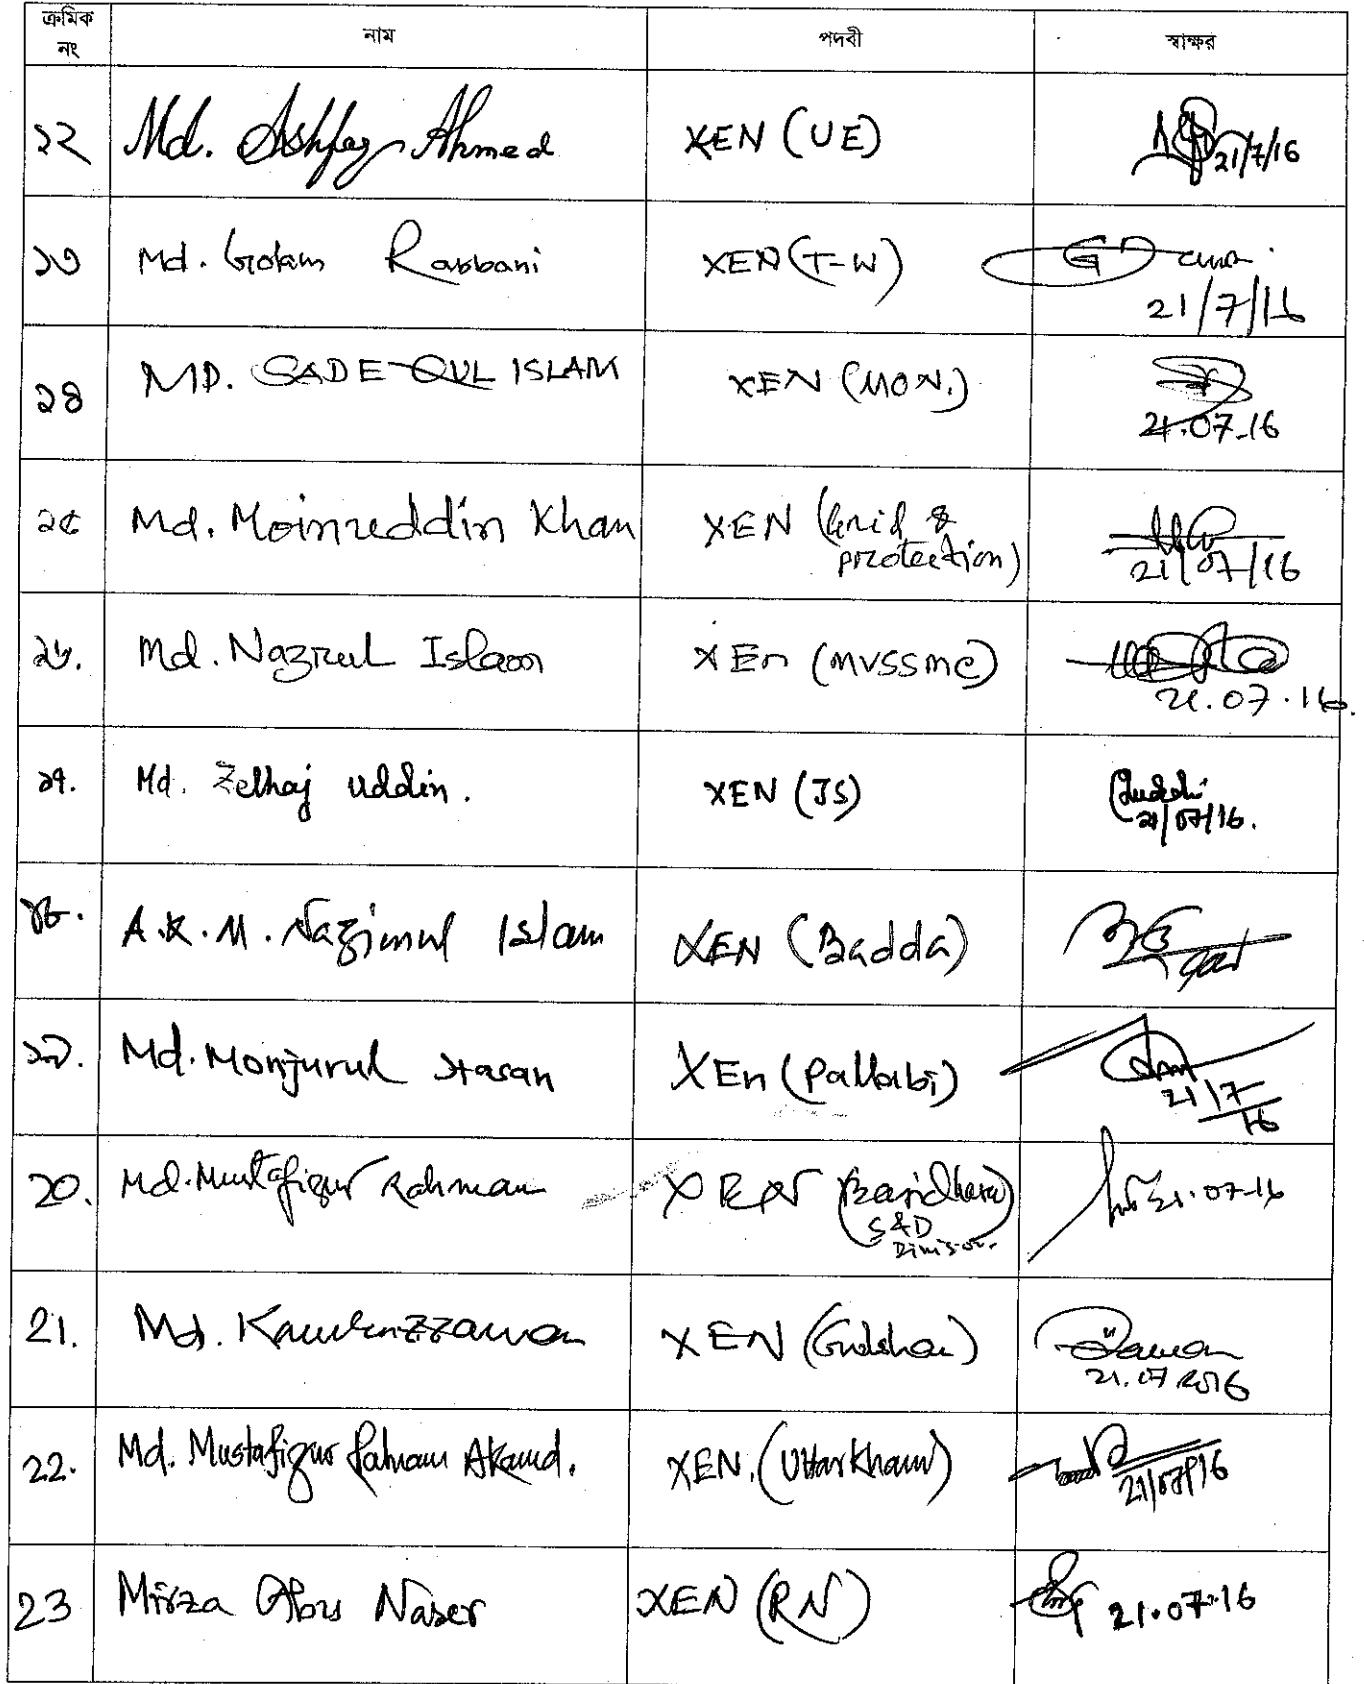 ক্রমিক নং নাম পদবী স্বাক্ষর
১২ Md. Ashfaq Ahmed XEN (UE) 21/7/16
১৩ Md. Golam Rabbani XEN (T-W) 21/7/16
১৪ MD. SADEQUL ISLAM XEN (MON.) 21.07.16
১৫ Md. Moinuddin Khan XEN (Grid & protection) 21/07/16
১৬. Md. Nazrul Islam XEn (MVSSMC) 21.07.16.
১৭. Md. Zelhaj Uddin. XEN (JS) 21/07/16.
১৮. A.K.M. Nazimul Islam XEN (Badda)
১৯. Md. Monjurul Hasan XEn (Pallabi) 21/7/16
20. Md. Mustafizur Rahman XEN (Baridhara S&D Division. 21.07.16
21. Md. Kamruzzaman XEN (Gulshan) Zaman 21.07.2016
22. Md. Mustafizur Rahman Akand. XEN. (Uttarkhan) 21/07/16
23 Mirza Abu Naser XEN (RN) 21.07.16